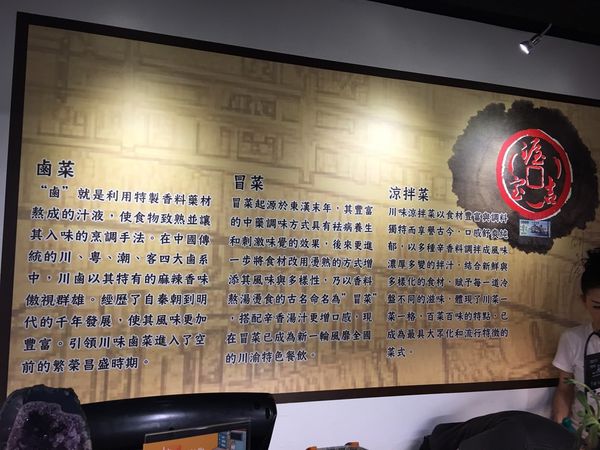 鹵菜
"鹵"就是利用特製香料藥材
熬成的汁液，使食物致熟並讓
其入味的烹調手法。在中國傳
統的川、粵、潮、客四大鹵系
中，川鹵以其特有的麻辣香味
傲視群雄。經歷了自秦朝到明
代的千年發展，使其風味更加
豐富。引領川味鹵菜進入了空
前的繁榮昌盛時期。
冒菜
冒菜起源於東漢末年，其豐富
的中藥調味方式具有祛病養生
和刺激味覺的效果，後來更進
一步將食材改用燙熟的方式增
添其風味與多樣性，乃以香料
熬湯燙食的古名命名為"冒菜"
，搭配辛香湯汁更增口感，現
在冒菜已成為新一輪風靡全國
的川渝特色餐飲。
涼拌菜
川味涼拌菜以食材豐富與調料
獨特而享譽古今，口感鮮爽純
郁，以多種辛香料調拌成風味
濃厚多變的拌汁，結合新鮮與
多樣化的食材，賦予每一道冷
盤不同的滋味，體現了川菜一
菜一格，百菜百味的特點，已
成為最具大眾化和流行特徵的
菜式。